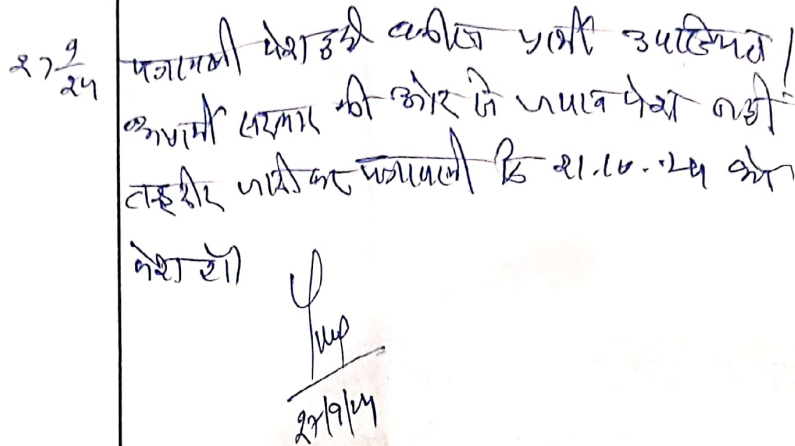 27 9/24 पत्रावली पेश हुई वकील प्रार्थी उपस्थित।
अप्रार्थी सरकार की ओर से जवाब पेश नहीं
तहरीर जारी कर पत्रावली दि 21.10.24 को
पेश हो।
27/9/24